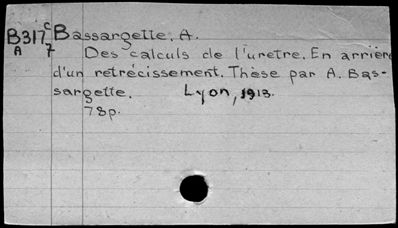 B317 c Bassargette, A.
A 7 Des calculs de l'uretre. En arrière
d'un retrécissement. Thèse par A. Bas-
sargette. Lyon, 1913.
78p.